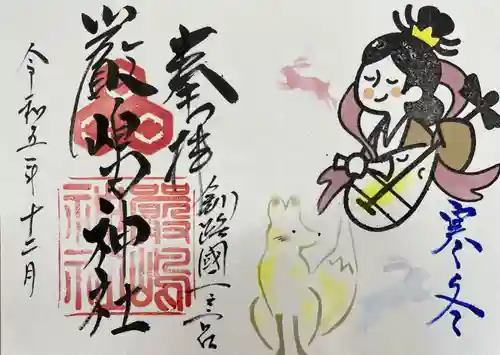 奉拝
釧路國一之宮
厳島神社
嚴嶋
神社
令和五年十二月
寒冬